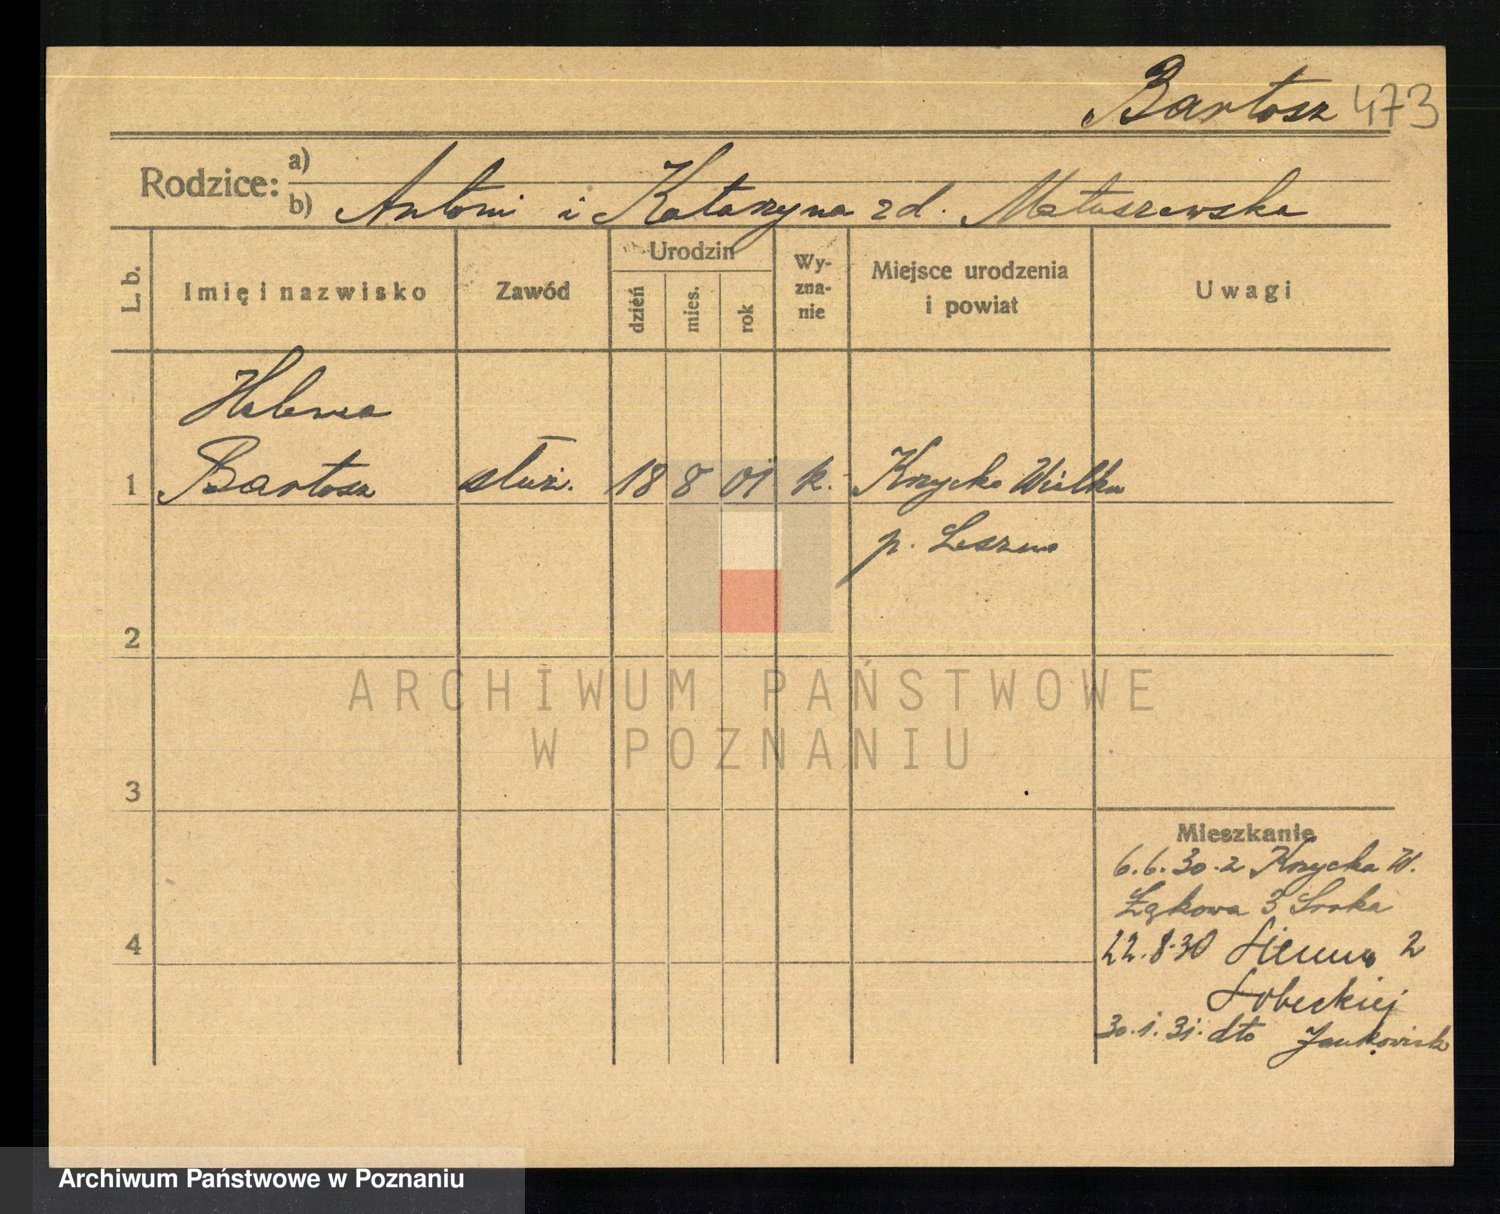 Bartosz 473
Rodzice: a)
b) Antoni i Katarzyna zd. Matuszewska
L. b.
Imię i nazwisko
Zawód
Urodzin
dzień
mies.
rok
Wy-
zna-
nie
Miejsce urodzenia
i powiat
Uwagi
Helena
1 Bartosz służ. 18 8 01 k. Krzycko Wielkie
p. Leszno
2
3
4
Mieszkanie
6.6.30 z Krzycka W.
Łąkowa 3 Sroka
22.8.30 Sienna 2
Sobeckiej
30.1.31. dto
ARCHIWUM PAŃSTWOWE
W POZNANIU
Archiwum Państwowe w Poznaniu